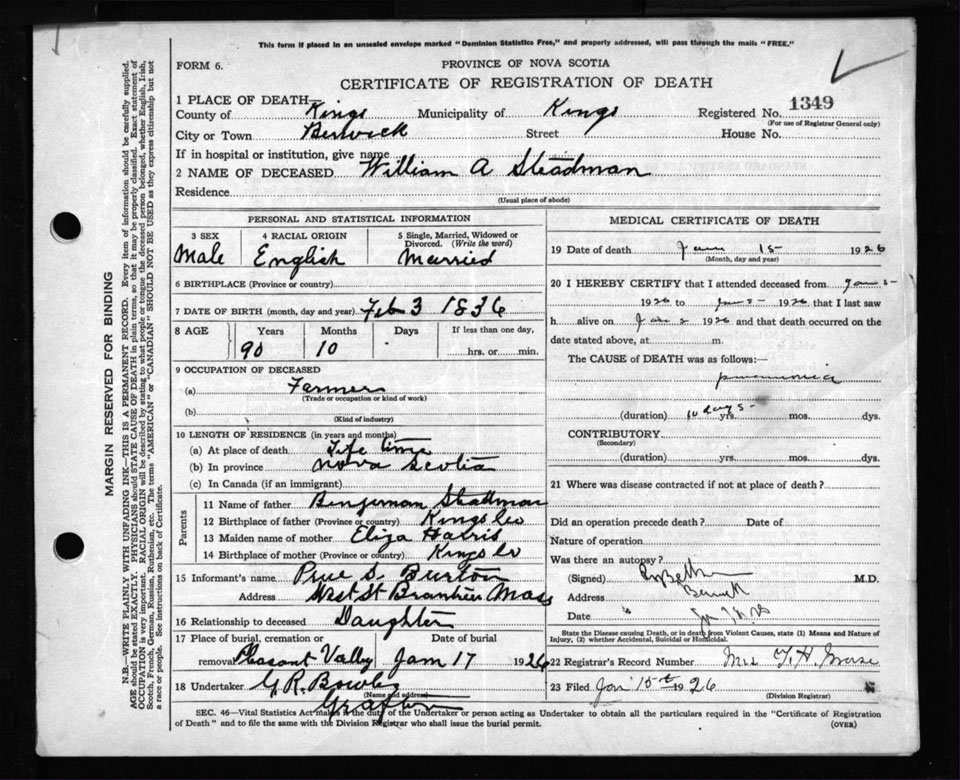 This form if placed in an unsealed envelope marked "Dominion Statistics Free," and properly addressed, will pass through the mails "FREE."
FORM 6.
PROVINCE OF NOVA SCOTIA
CERTIFICATE OF REGISTRATION OF DEATH
1 PLACE OF DEATH—
County of Kings Municipality of Kings Registered No. 1349
(For use of Registrar General only)
City or Town Berwick Street House No.
If in hospital or institution, give name
2 NAME OF DECEASED William A Steadman
Residence
(Usual place of abode)
PERSONAL AND STATISTICAL INFORMATION
3 SEX 4 RACIAL ORIGIN 5 Single, Married, Widowed or Divorced. (Write the word)
Male English Married
6 BIRTHPLACE (Province or country)
7 DATE OF BIRTH (month, day and year) Feb 3 1836
8 AGE Years Months Days If less than one day,
90 10 hrs. or min.
9 OCCUPATION OF DECEASED
(a) Farmer
(Trade or occupation or kind of work)
(b)
(Kind of industry)
10 LENGTH OF RESIDENCE (in years and months)
(a) At place of death Life time
(b) In province Nova Scotia
(c) In Canada (if an immigrant)
Parents
11 Name of father Benjeman Steadman
12 Birthplace of father (Province or country) Kings Co
13 Maiden name of mother Eliza Harris
14 Birthplace of mother (Province or country) Kings Co
15 Informant's name S. Burton
Address West St Mass
16 Relationship to deceased Daughter
17 Place of burial, cremation or Date of burial
removal Pleasant Vally Jan 17 1926
18 Undertaker G.R. Bowlby
(Name and address)
Grafton
MEDICAL CERTIFICATE OF DEATH
19 Date of death Jan 15 1926
(Month, day and year)
20 I HEREBY CERTIFY that I attended deceased from Jan 5
1926 to Jan 1926 that I last saw
h alive on Jan 1926 and that death occurred on the
date stated above, at m.
The CAUSE of DEATH was as follows:—
pneumonia
(duration) 10 days yrs. mos. dys.
CONTRIBUTORY
(Secondary)
(duration) yrs. mos. dys.
21 Where was disease contracted if not at place of death?
Did an operation precede death? Date of
Nature of operation
Was there an autopsy?
(Signed) M.D.
Address Berwick
Date
State the Disease causing Death, or in death from Violent Causes, state (1) Means and Nature of
Injury, (2) whether Accidental, Suicidal or Homicidal.
22 Registrar's Record Number Mrs T. H. Morse
23 Filed Jan 15th 1926
(Division Registrar)
SEC. 46—Vital Statistics Act makes it the duty of the Undertaker or person acting as Undertaker to obtain all the particulars required in the "Certificate of Registration
of Death" and to file the same with the Division Registrar who shall issue the burial permit. (OVER)
MARGIN RESERVED FOR BINDING
N.B.—WRITE PLAINLY WITH UNFADING INK—THIS IS A PERMANENT RECORD. Every item of information should be carefully supplied.
AGE should be stated EXACTLY. PHYSICIANS should STATE CAUSE OF DEATH in plain terms, so that it may be properly classified. Exact statement of
OCCUPATION is very important. RACIAL ORIGIN will be described by stating to what people or tongue the deceased person belonged, whether English, Irish,
Scotch, French, German, Russian, Ruthenian, etc. The terms "AMERICAN" or "CANADIAN" SHOULD NOT BE USED as they express citizenship but not
a race or people. See instructions on back of Certificate.